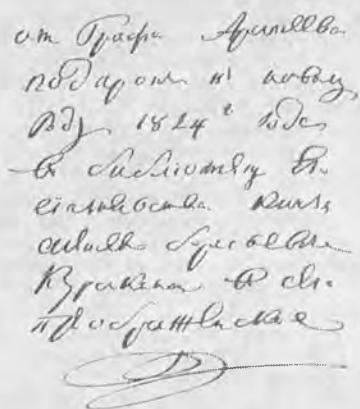 от Графа Аракчеева
подарокъ къ новому
году 1824ᵍ года
въ библіотеку Его
сіятельства Князя
Алексѣя Борисовича
Куракина въ село
Преображенское